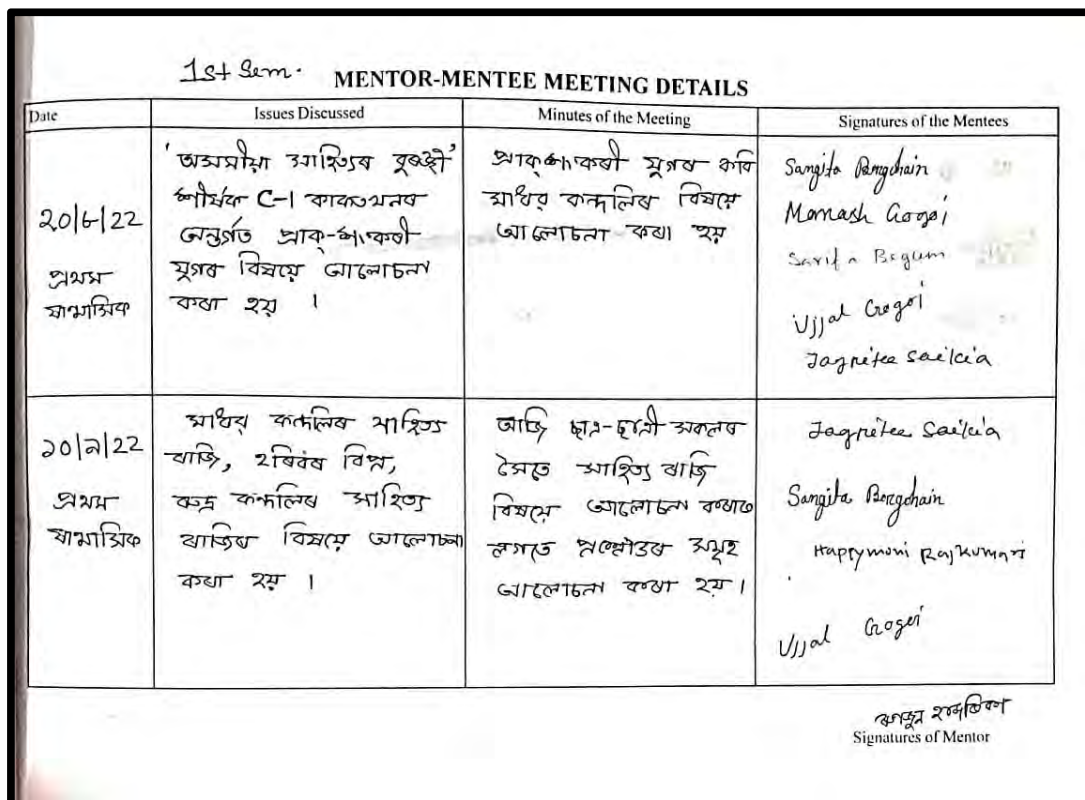 1st Sem.
MENTOR-MENTEE MEETING DETAILS
Date
Issues Discussed
Minutes of the Meeting
Signatures of the Mentees
২০/৮/22
প্ৰথম
ষান্মাসিক
'অসমীয়া সাহিত্যৰ বুৰঞ্জী'
শীৰ্ষক C-1 কাকতখনৰ
অন্তৰ্গত প্ৰাক্-শংকৰী
যুগৰ বিষয়ে আলোচনা
কৰা হয় ।
প্ৰাক্শংকৰী যুগৰ কবি
মাধৱ কন্দলিৰ বিষয়ে
আলোচনা কৰা হয়
Sangita Borgohain
Manash Gogoi
Sarifa Begum
Ujjal Gogoi
Jagritee Saikia
১০/৯/22
প্ৰথম
ষান্মাসিক
মাধৱ কন্দলিৰ সাহিত্য
ৰাজি, হৰিবৰ বিপ্ৰ,
ৰুদ্ৰ কন্দলিৰ সাহিত্য
ৰাজিৰ বিষয়ে আলোচনা
কৰা হয় ।
আজি ছাত্ৰ-ছাত্ৰী সকলৰ
সৈতে সাহিত্য ৰাজি
বিষয়ে আলোচনা কৰাৰ
লগতে প্ৰশ্নোত্তৰ সমূহ
আলোচনা কৰা হয় ।
Jagritee Saikia
Sangita Borgohain
Happymoni Rajkumari
Ujjal Gogoi
Signatures of Mentor